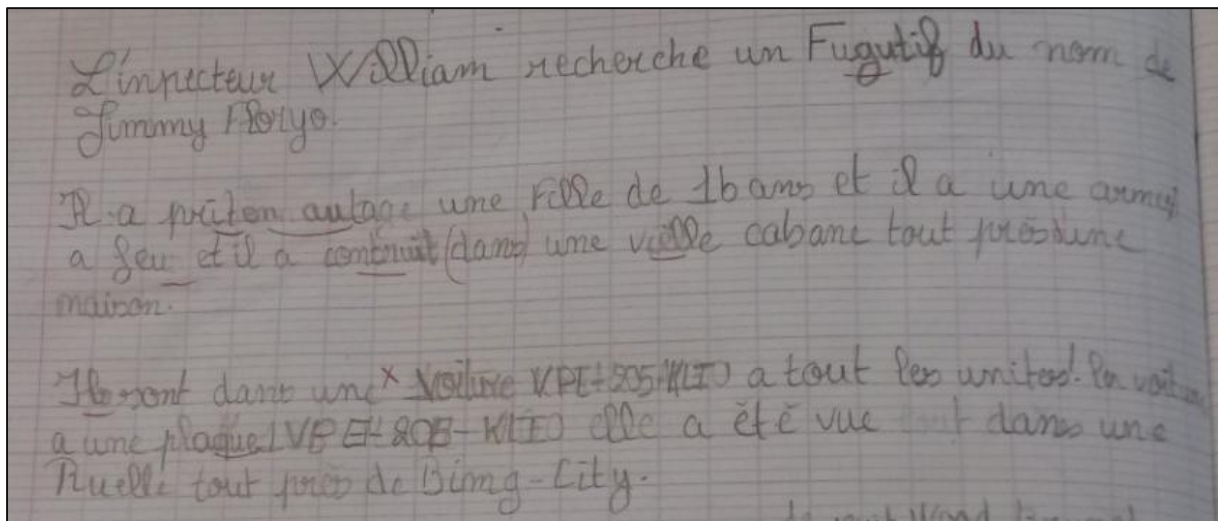 L'inpecteur William recherche un Fugutif du nom de
Jimmy Floryo.
Il a priten autage une fille de 16 ans et il a une arme
a feu et il a contruit (dans) une vielle cabane tout près d'une
maison.
Ils sont dans une x voiture VPE-205-KLIO a tout les unites! la voiture
a une plaque! VPE-205-KLIO elle a été vue dans une
Ruelle tout près de Bimg-City.